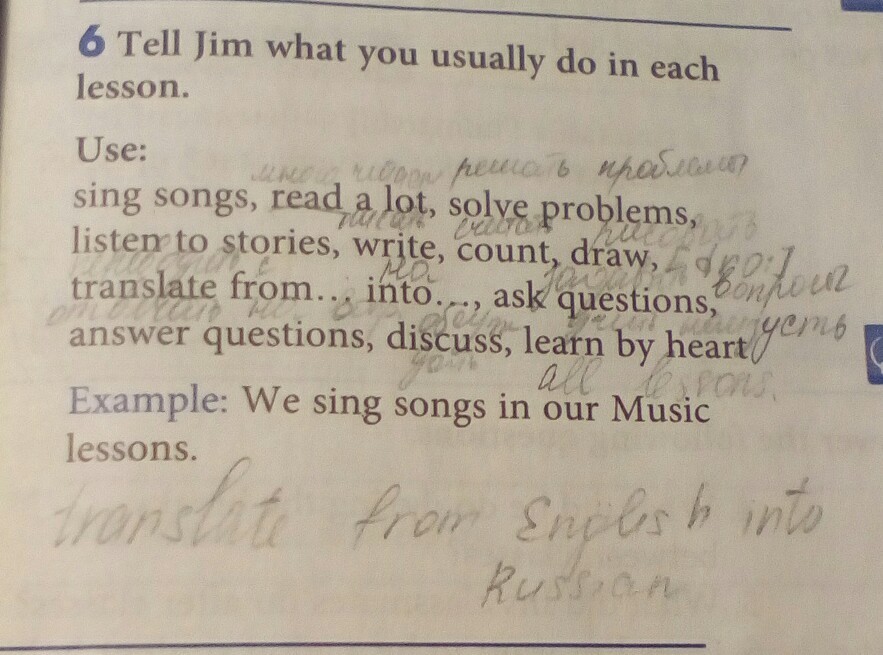 6 Tell Jim what you usually do in each
lesson.
Use:
много решать проблемы
sing songs, read a lot, solve problems,
писать считать рисовать
listen to stories, write, count, draw, [dro:]
на задавать вопросы
translate from... into..., ask questions,
отвечать на обсуж учить наизусть
answer questions, discuss, learn by heart
дать all lessons.
Example: We sing songs in our Music
lessons.
translate from English into
Russian